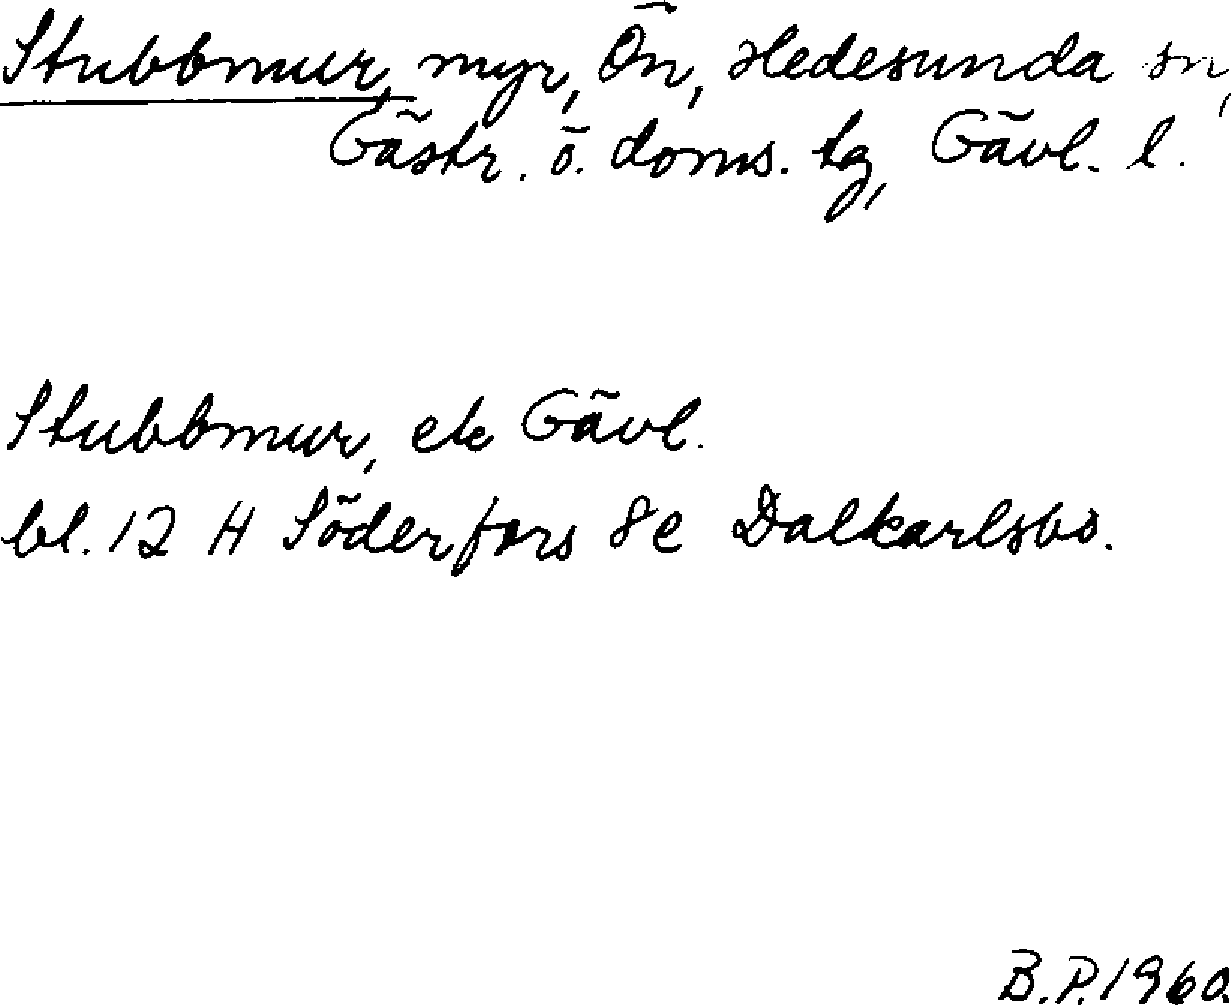 Stubbmur, myr, Ön, Hedesunda sn,
Gästr. ö. doms. tg, Gävl. l.
Stubbmur, ek Gävl.
bl. 12 H Söderfors 8e Dalkarlsbo.
B.P. 1960